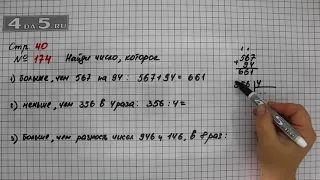 4DA5.RU
Стр. 40
№ 174 Найди число, которое
1) Больше, чем 567 на 94: 567+94= 661
2) меньше, чем 356 в 4 раза: 356:4=
3) Больше, чем разность чисел 946 и 146, в 8 раз:
567
+ 94
661
356 4